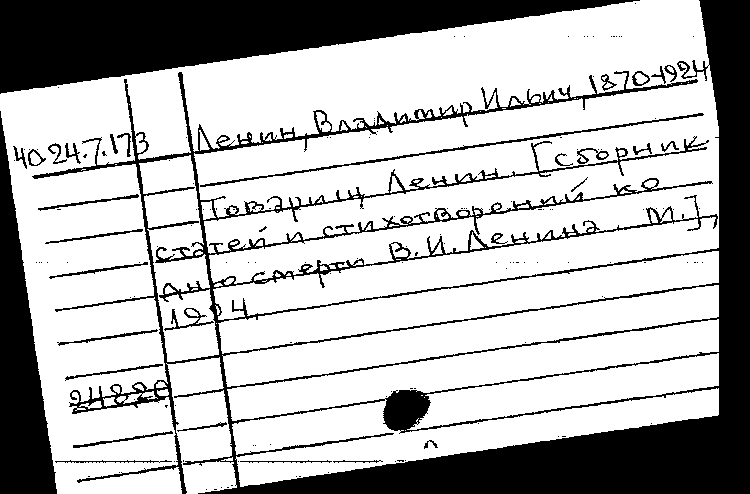 40.24.7.173 Ленин, Владимир Ильич, 1870-1924
Товарищ Ленин. [Сборник
статей и стихотворений ко
дню смерти В.И.Ленина. М.],
1924.
24820